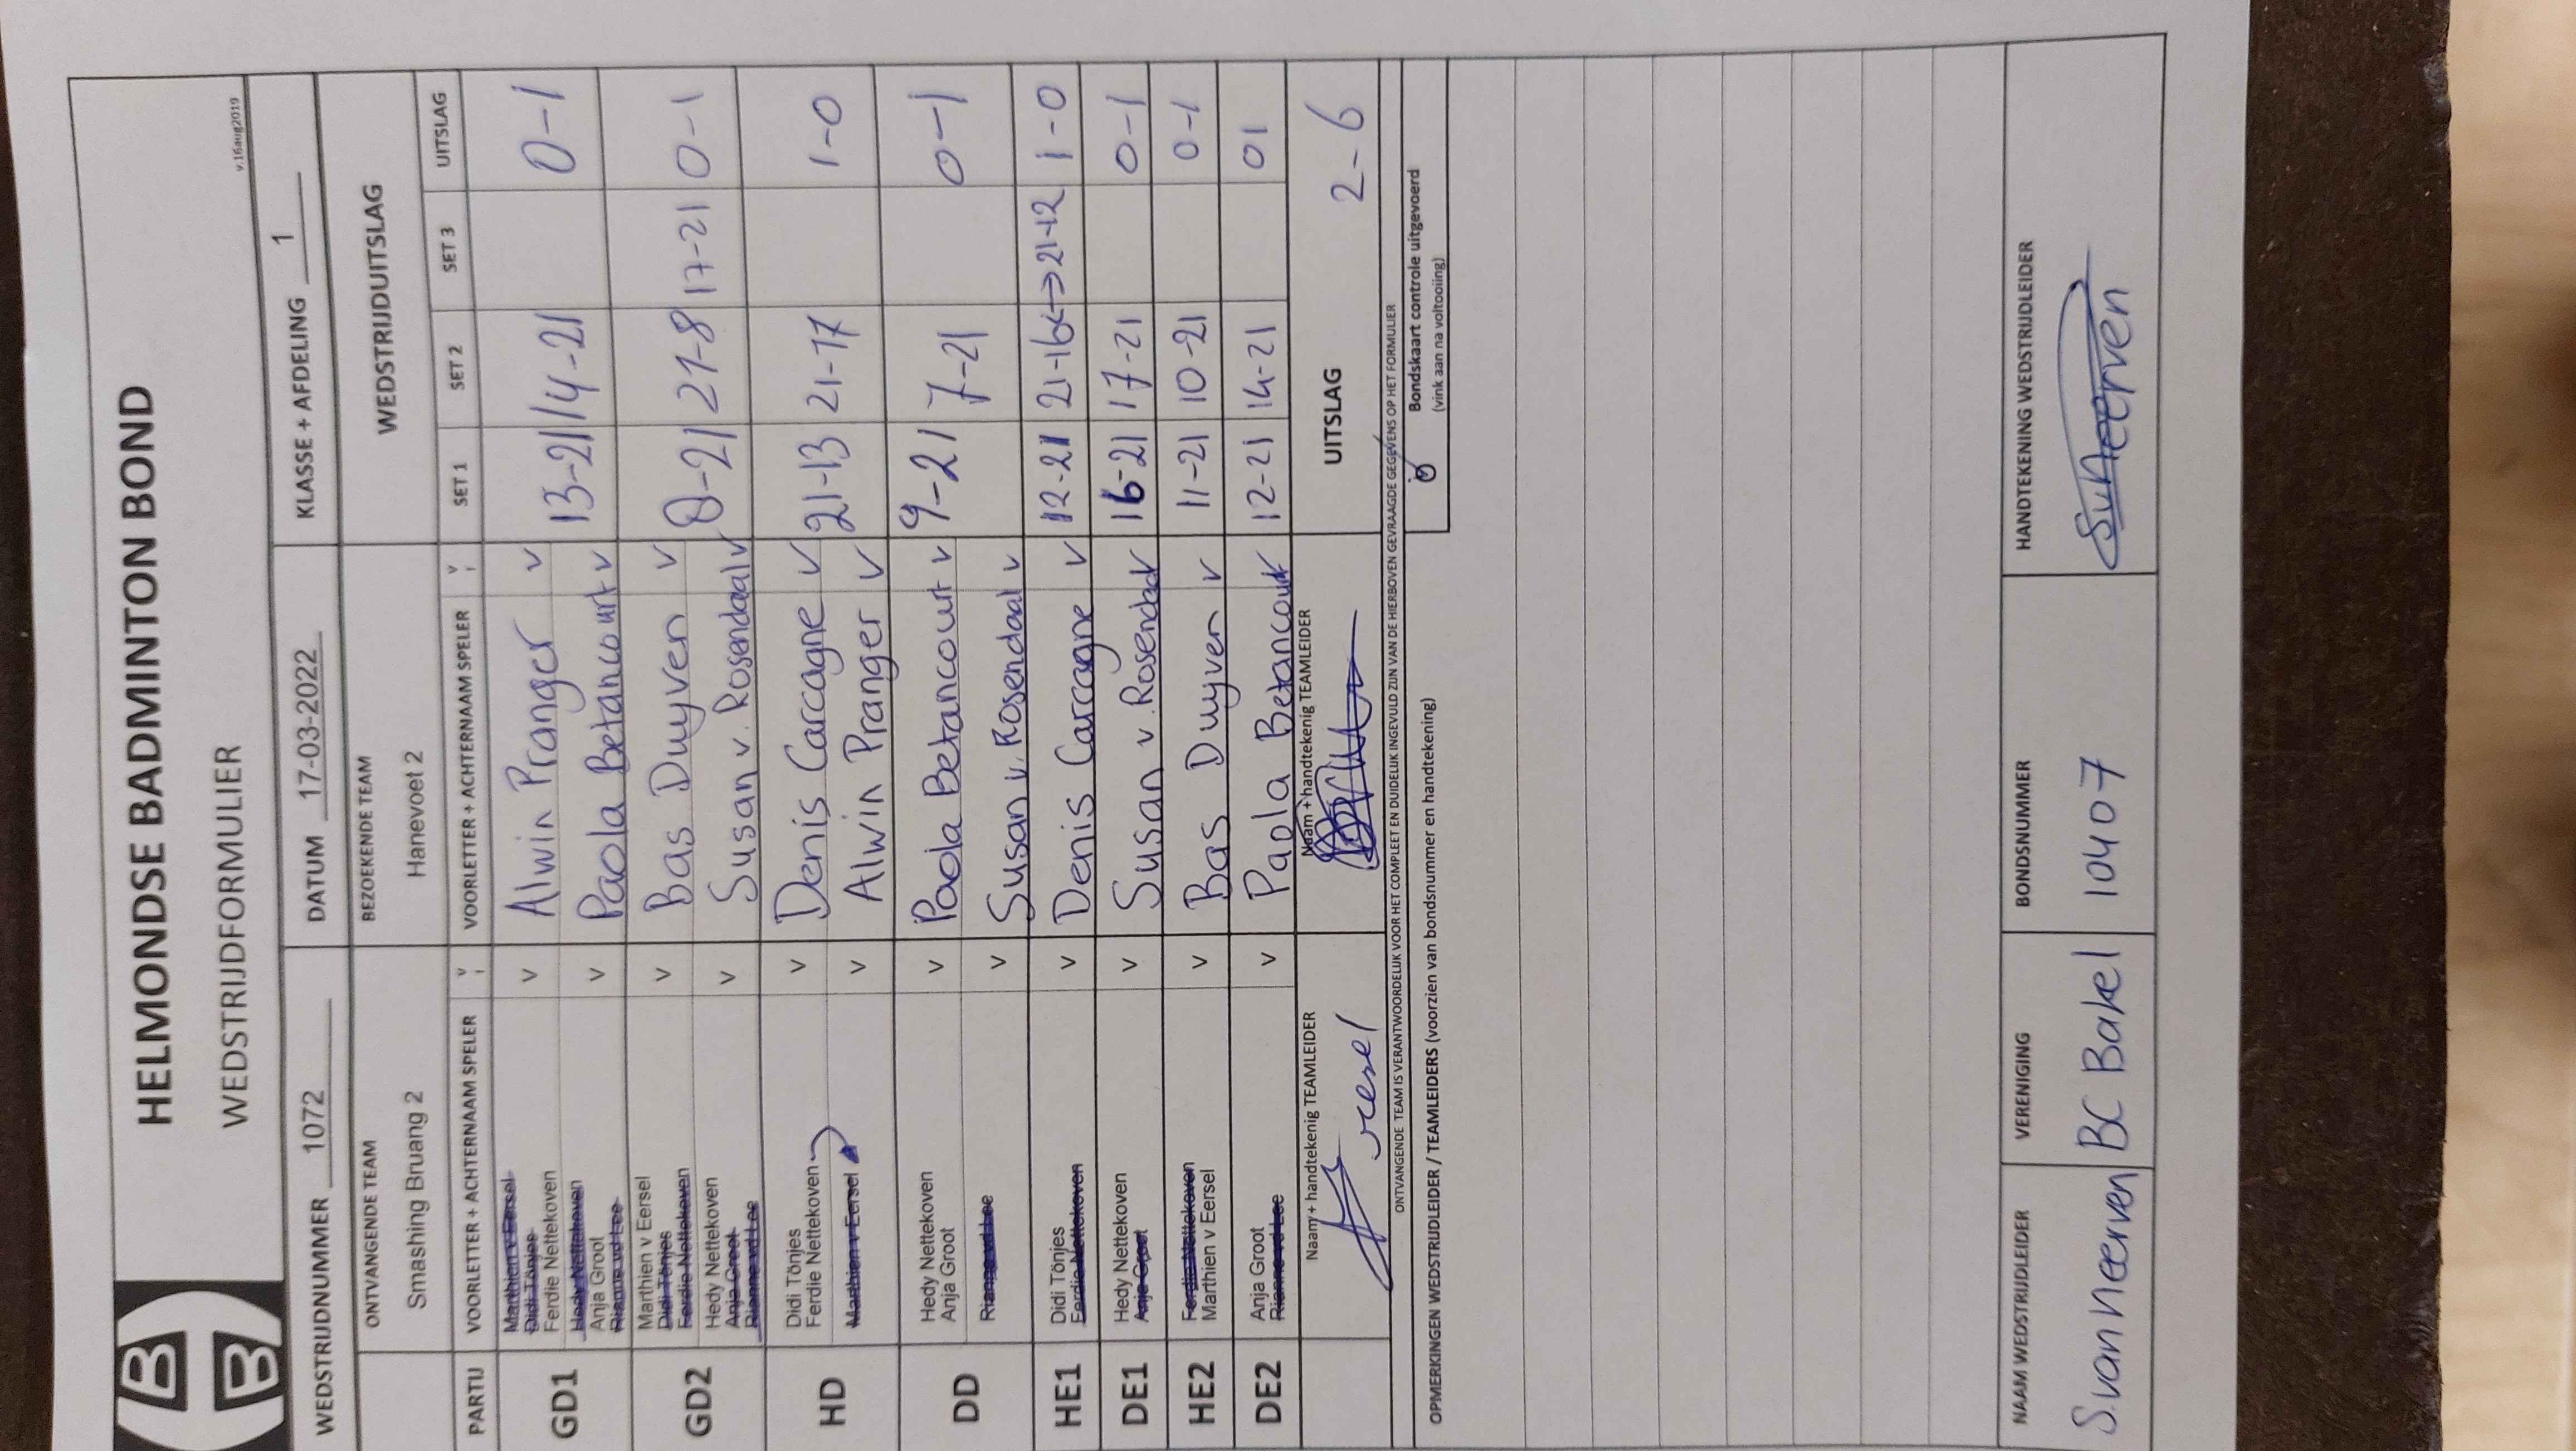 HELMONDSE BADMINTON BOND
WEDSTRIJDFORMULIER
v.16aug2019
WEDSTRIJDNUMMER 1072 DATUM 17-03-2022 KLASSE + AFDELING 1
ONTVANGENDE TEAM BEZOEKENDE TEAM WEDSTRIJDUITSLAG
Smashing Bruang 2 Hanevoet 2
PARTIJ VOORLETTER + ACHTERNAAM SPELER v VOORLETTER + ACHTERNAAM SPELER v SET 1 SET 2 SET 3 UITSLAG
GD1
Marthien v Eersel
Didi Tönjes
Ferdie Nettekoven v Alwin Pranger v
Hedy Nettekoven
Anja Groot v Paola Betancourt v 13-21 14-21 0-1
Rianne vd Lee
GD2
Marthien v Eersel v Bas Duyven v
Didi Tönjes
Ferdie Nettekoven
Hedy Nettekoven v Susan v. Rosendaal v 8-21 21-8 17-21 0-1
Anja Groot
Rianne vd Lee
HD
Didi Tönjes v Denis Carcagne v
Ferdie Nettekoven
Marthien v Eersel v Alwin Pranger v 21-13 21-17 1-0
DD
Hedy Nettekoven v Paola Betancourt v 9-21 7-21 0-1
Anja Groot
Rianne vd Lee v Susan v. Rosendaal v
HE1 Didi Tönjes v Denis Carcagne v 12-21 21-16 <-> 21-12 1-0
Ferdie Nettekoven
DE1 Hedy Nettekoven v Susan v. Rosendaal v 16-21 17-21 0-1
Anja Groot
HE2 Ferdie Nettekoven v Bas Duyven v 11-21 10-21 0-1
Marthien v Eersel
DE2 Anja Groot v Paola Betancourt v 12-21 14-21 0 1
Rianne vd Lee
Naam + handtekenig TEAMLEIDER Naam + handtekenig TEAMLEIDER UITSLAG 2-6
ONTVANGENDE TEAM IS VERANTWOORDELIJK VOOR HET COMPLEET EN DUIDELIJK INGEVULD ZIJN VAN DE HIERBOVEN GEVRAAGDE GEGEVENS OP HET FORMULIER
Bondskaart controle uitgevoerd
(vink aan na voltooiing)
OPMERKINGEN WEDSTRIJDLEIDER / TEAMLEIDERS (voorzien van bondsnummer en handtekening)
NAAM WEDSTRIJDLEIDER VERENIGING BONDSNUMMER HANDTEKENING WEDSTRIJDLEIDER
S. van Neerven BC Bakel 10407 SvNeerven